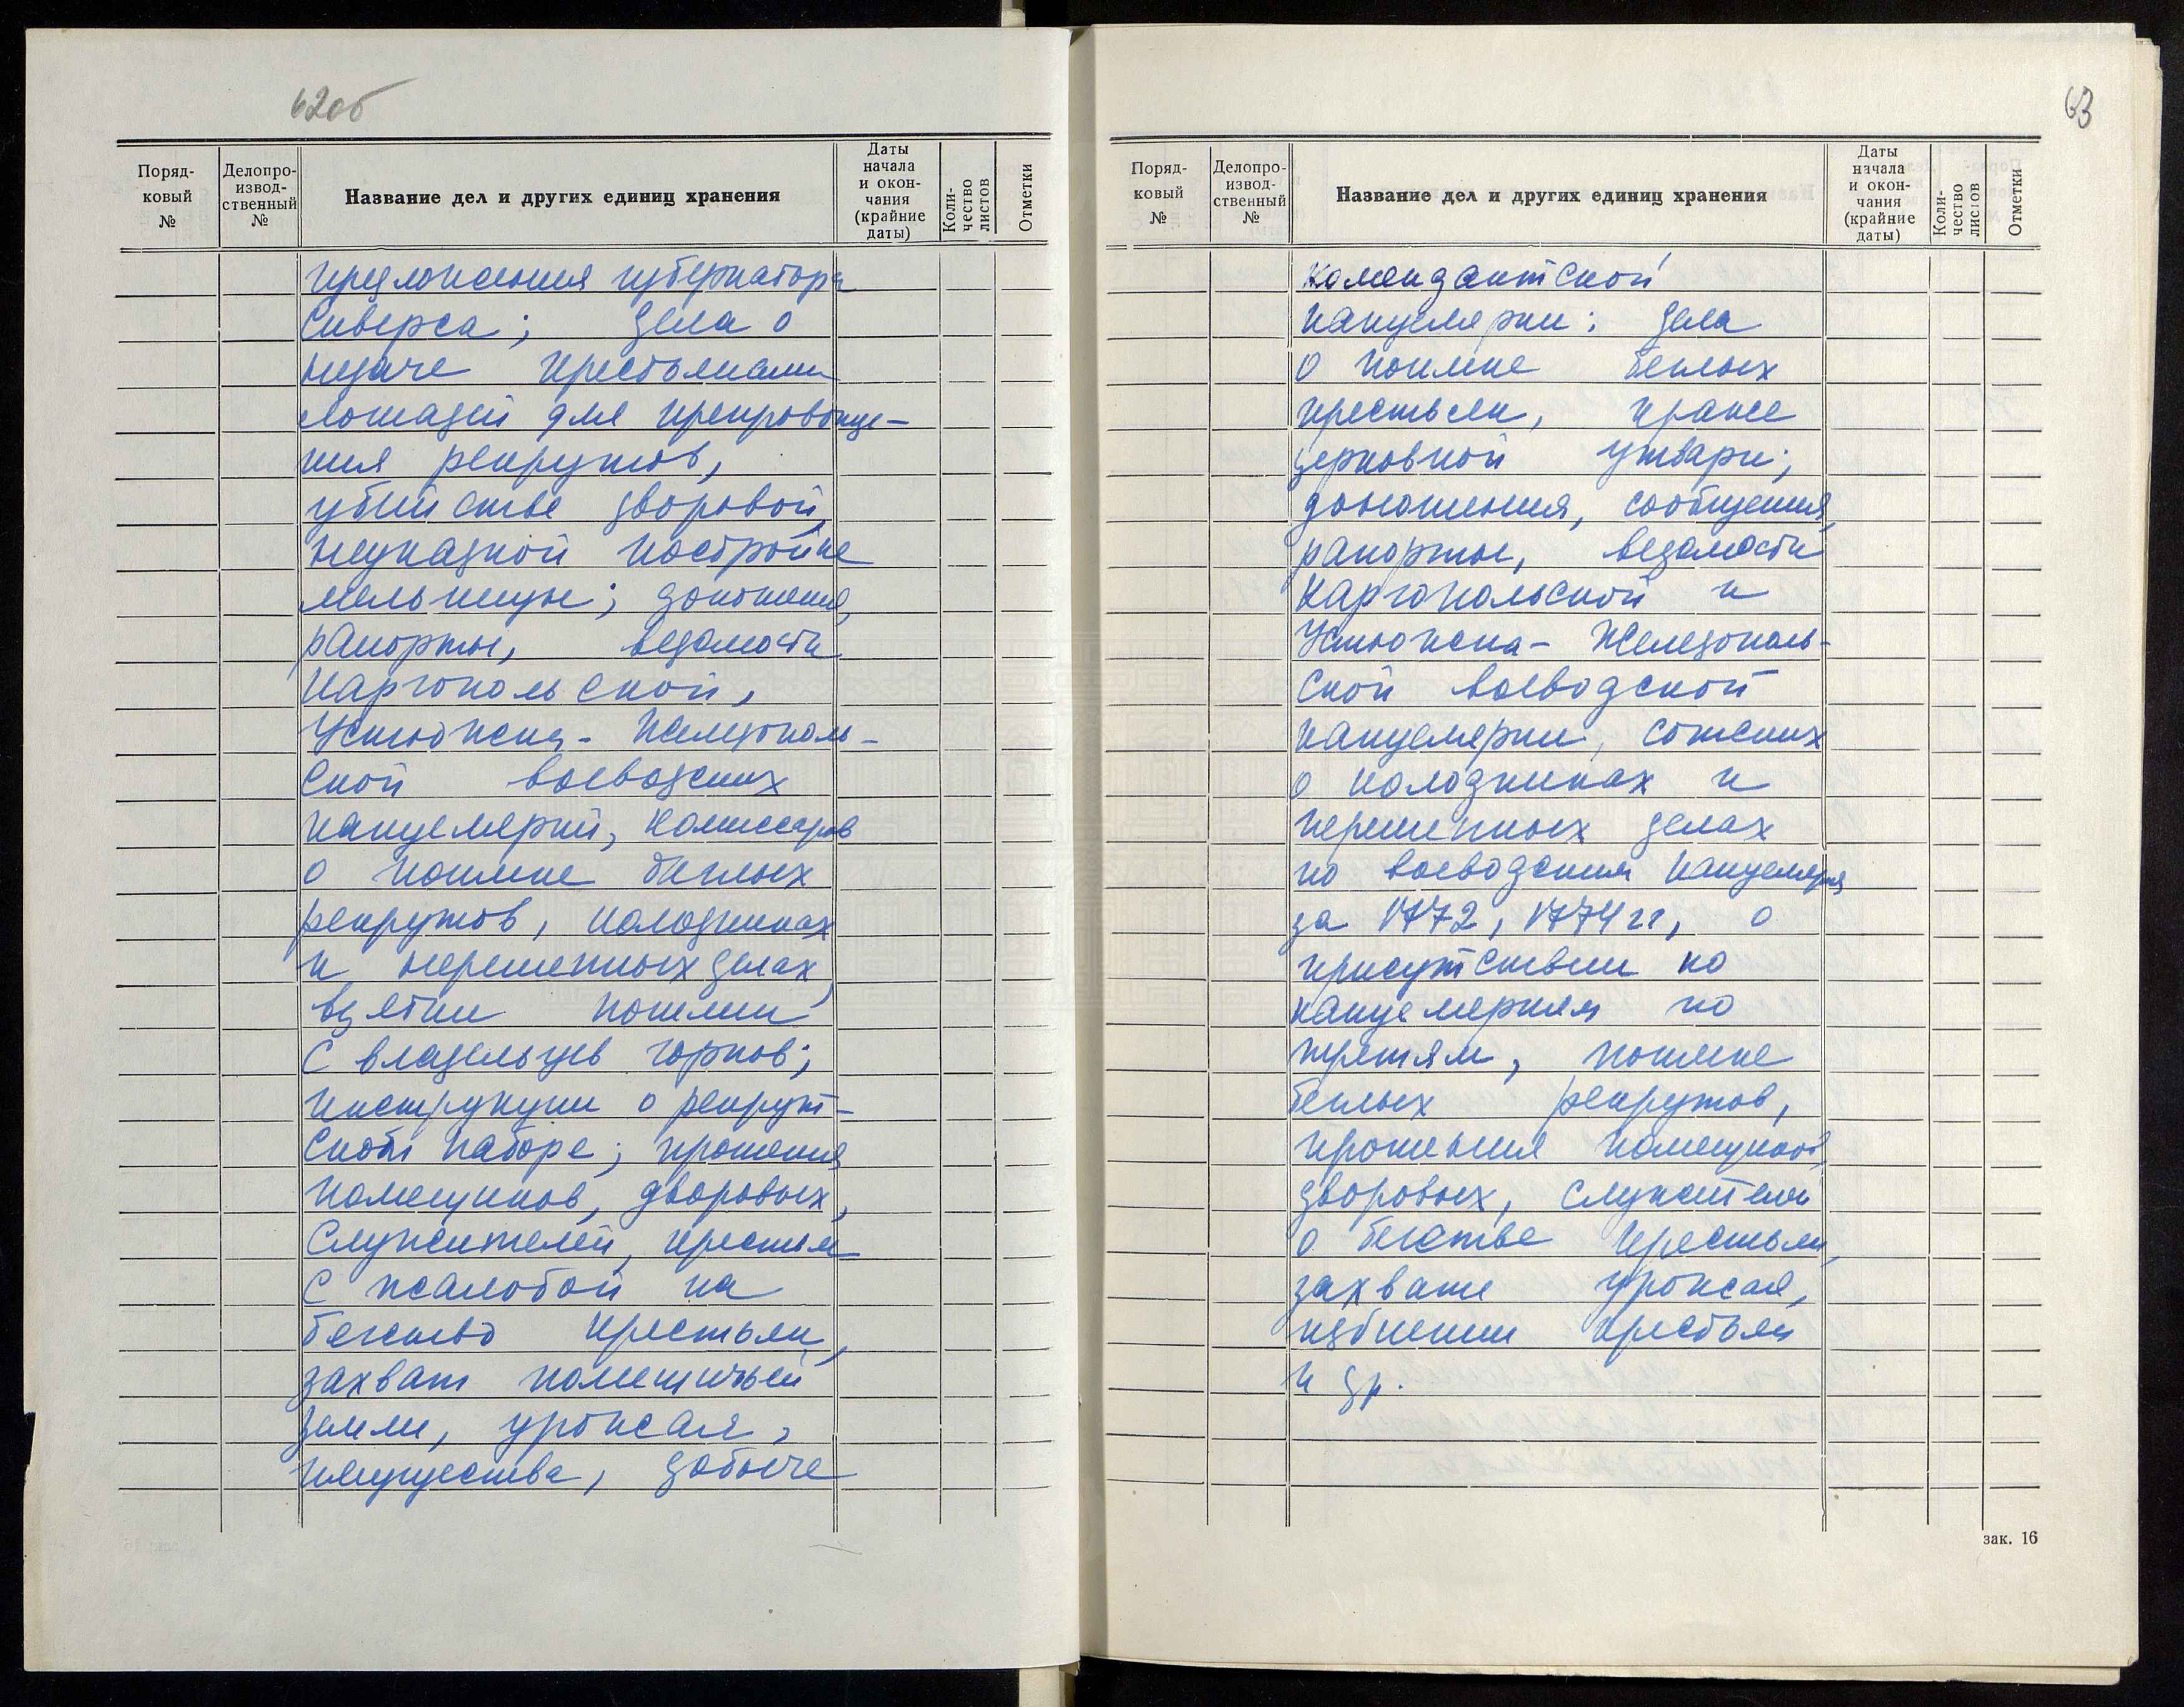 62об
Поряд-
ковый
№
Делопро-
извод-
ственный
№
Название дел и других единиц хранения
Даты
начала
и окон-
чания
(крайние
даты)
Коли-
чество
листов
Отметки
предложения губернатора
Сиверса; дела о
недаче крестьянами
лошадей для препровожде-
ния рекрутов,
убийстве дворовой,
неуказной постройке
мельницы; доношения,
рапорты, ведомости
Каргопольской,
Устюжена-Железополь-
ской воеводских
канцелярий, комиссаров
о поимке беглых
рекрутов, колодниках
и нерешенных делах,
взятии пошлин
с владельцев горнов;
инструкции о рекрут-
ском наборе; прошения
помещиков, дворовых,
служителей, крестьян
с жалобой на
бегство крестьян,
захват помещичьей
земли, урожая,
имущества,
63
Поряд-
ковый
№
Делопро-
извод-
ственный
№
Название дел и других единиц хранения
Даты
начала
и окон-
чания
(крайние
даты)
Коли-
чество
листов
Отметки
комендантской
канцелярии; дела
о поимке беглых
крестьян, краже
церковной утвари;
доношения, сообщения,
рапорты, ведомости
Каргопольской и
Устюжена-Железополь-
ской воеводской
канцелярии, сотских
о колодниках и
нерешенных делах
по воеводским канцеляриям
за 1772, 1774 гг, о
присутствии по
канцеляриям по
третям, поимке
беглых рекрутов,
прошения помещиков,
дворовых, служителей
о бегстве крестьян,
захвате урожая,
избиении крестьян
и др.
зак. 16